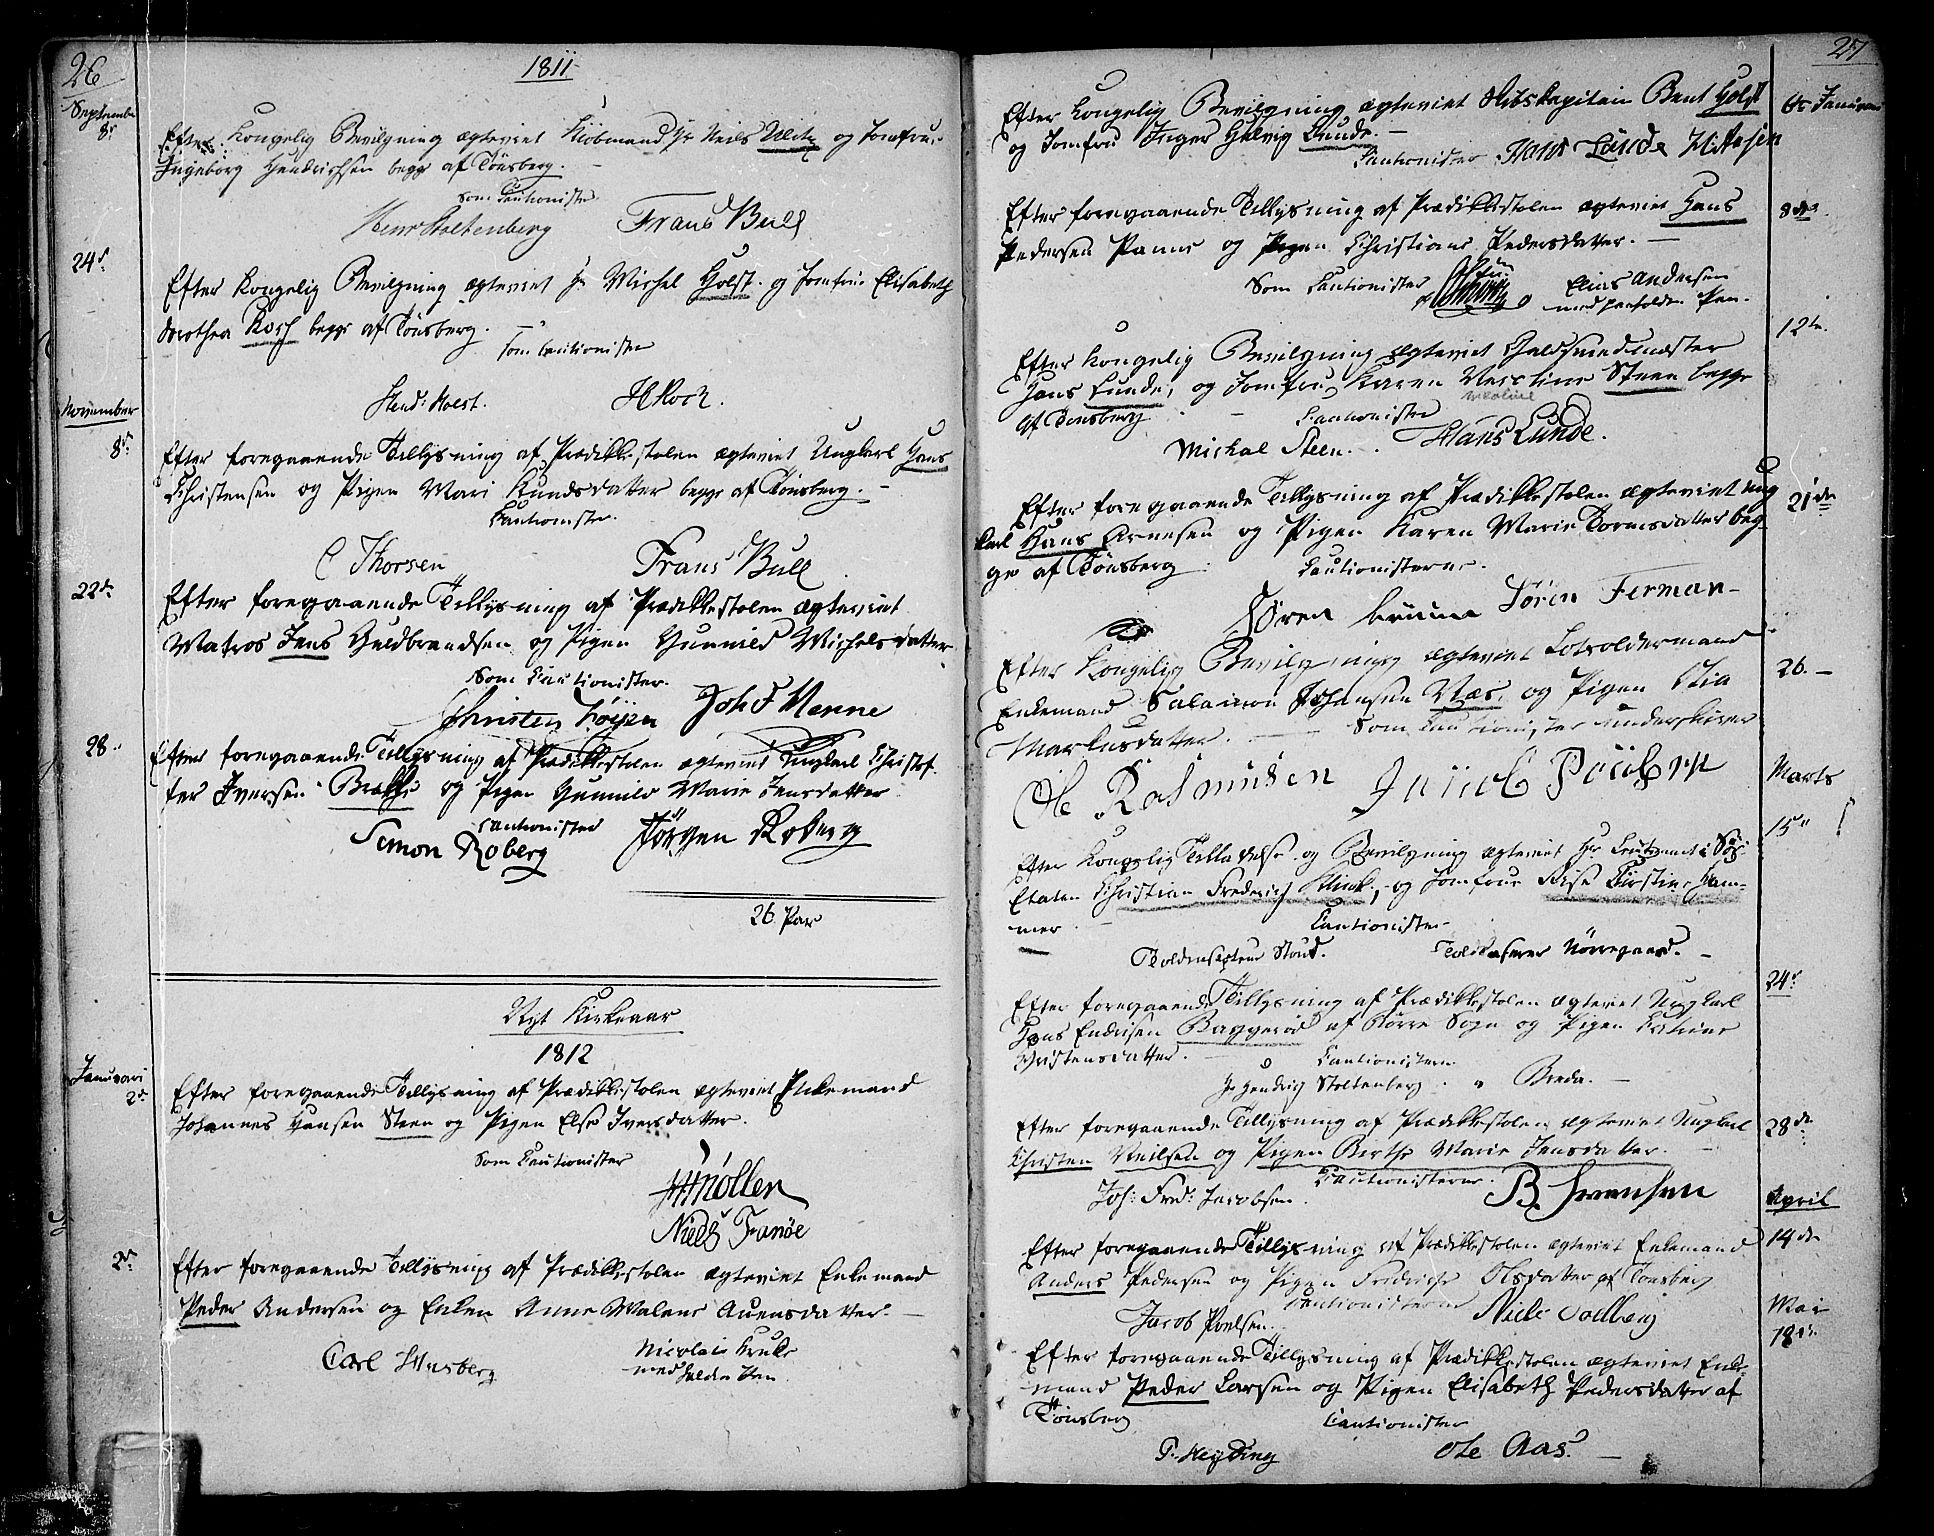 26
1811
September
8de
Efter Kongelig Bevilgning ægteviet Kiöbmand Hr Neils Ulitz og Jomfrue
Ingeborg Hendrichsen begge af Tönsberg. —
som Cautionister
Henr Stoltenberg Frans Bull
24de
Efter Kongelig Bevilgning ægteviet Hr Michel Holst og Jomfrue Elisabeth
Dorothea Koch begge af Tönsberg. —
som Cautionister
Hend: Holst. H Koch.
November
8de
Efter foregaaende Tillysning af Prædikestolen ægteviet Ungkarl Hans
Christensen og Pigen Mari Knudsdatter begge af Tönsberg. —
Cautionister.
C Thorsen Frans Bull
22de
Efter foregaaende Tillysning af Prædikestolen ægteviet
Matros Jens Guldbrandsen og Pigen Gunnild Michelsdatter
Som Cautionister.
Christen Joh F Manne
28
Efter foregaaende Tillysning af Prædikestolen ægteviet Ungkarl Christof-
fer Iversen Bække og Pigen Gunnild Marie Jensdatter
Cautionister
Simon Roberg Jörgen Roberg
26 Par
Nyt Kirkeaar
1812
Januari
2de
Efter foregaaende Tillysning af Prædikestolen ægteviet Enkemand
Johannes Hansen Steen og Pigen Else Iversdatter.
Som Cautionister
Möller
Niels Fanöe
2de
Efter foregaaende Tillysning af Prædikestolen ægteviet Enkemand
Peder Andersen og Enken Anne Malene Auensdatter
Carl Husberg Nicolai Kruke
med holden Pen
27
Efter Kongelig Bevilgning ægteviet Skibskapitain Bent Holst 6te Januari
og Jomfru Inger Helvig Lunde. —
Cautionister Hans Lunde
Efter foregaaende Tillysning af Prædikestolen ægteviet Hans 8de
Pedersen Panne og Pigen Christiane Pedersdatter. —
Som Cautionister Elias Andersen
med paaholden Pen.
12te
Efter Kongelig Bevilgning ægteviet Guldsmedmester
Hans Lunde, og Jomfru Karen Steen begge
af Tönsberg
Cautionister
Michael Steen. Hans Lunde.
Efter foregaaende Tillysning af Prædikestolen ægteviet Ung 21de
karl Hans Arnesen og Pigen Karen Marie Tormsdatter beg-
ge af Tönsberg Cautionisterne.
Sören Bruun Sörin Ferman
Efter Kongelig Bevilgning ægteviet Lotsoldermand 26. —
Enkemand Salamon Johansen Næs, og Pigen Stia
Markusdatter. — Som Cautionister underskriver
Ole Rasmusen Jacob Poulsen
Marts
15
Efter Kongelig Tilladelse og Bevilgning ægteviet Hr Lieutenant i Söe
Etaten Christian Frederich Klinck, og Jomfrue Else Kirstine Ham-
mer
Cautionister
Toldinspecteur Stoud. Toldkaserer Nörregaard. —
24de
Efter foregaaende Tillysning af Prædikestolen ægteviet Ungkarl
Hans Endresen Baggeröd af Börre Sogn og Pigen
Christensdatter. —
Cautionisterne
Hr Hendrig Stoltenberg. " Breda. —
Efter foregaaende Tillysning af Prædikestolen ægteviet Ungkarl 28de
Christen Neilsen og Pigen Birthe Marie Jensdatter.
Cautionisterne.
Joh: Fred: Jacobsen. B. Svensen
April
14de
Efter foregaaende Tillysning af Prædikestolen ægteviet Enkemand
Anders Pedersen og Pigen Fredriche Olsdatter af Tönsberg
Cautionisterne
Jacob Poulsen. Niels Solberg
Mai
18de
Efter foregaaende Tillysning af Prædikestolen ægteviet Enke-
mand Peder Larsen og Pigen Elisabeth Pedersdatter af
Tönsberg Cautionister
P. Heyding Ole Aas.